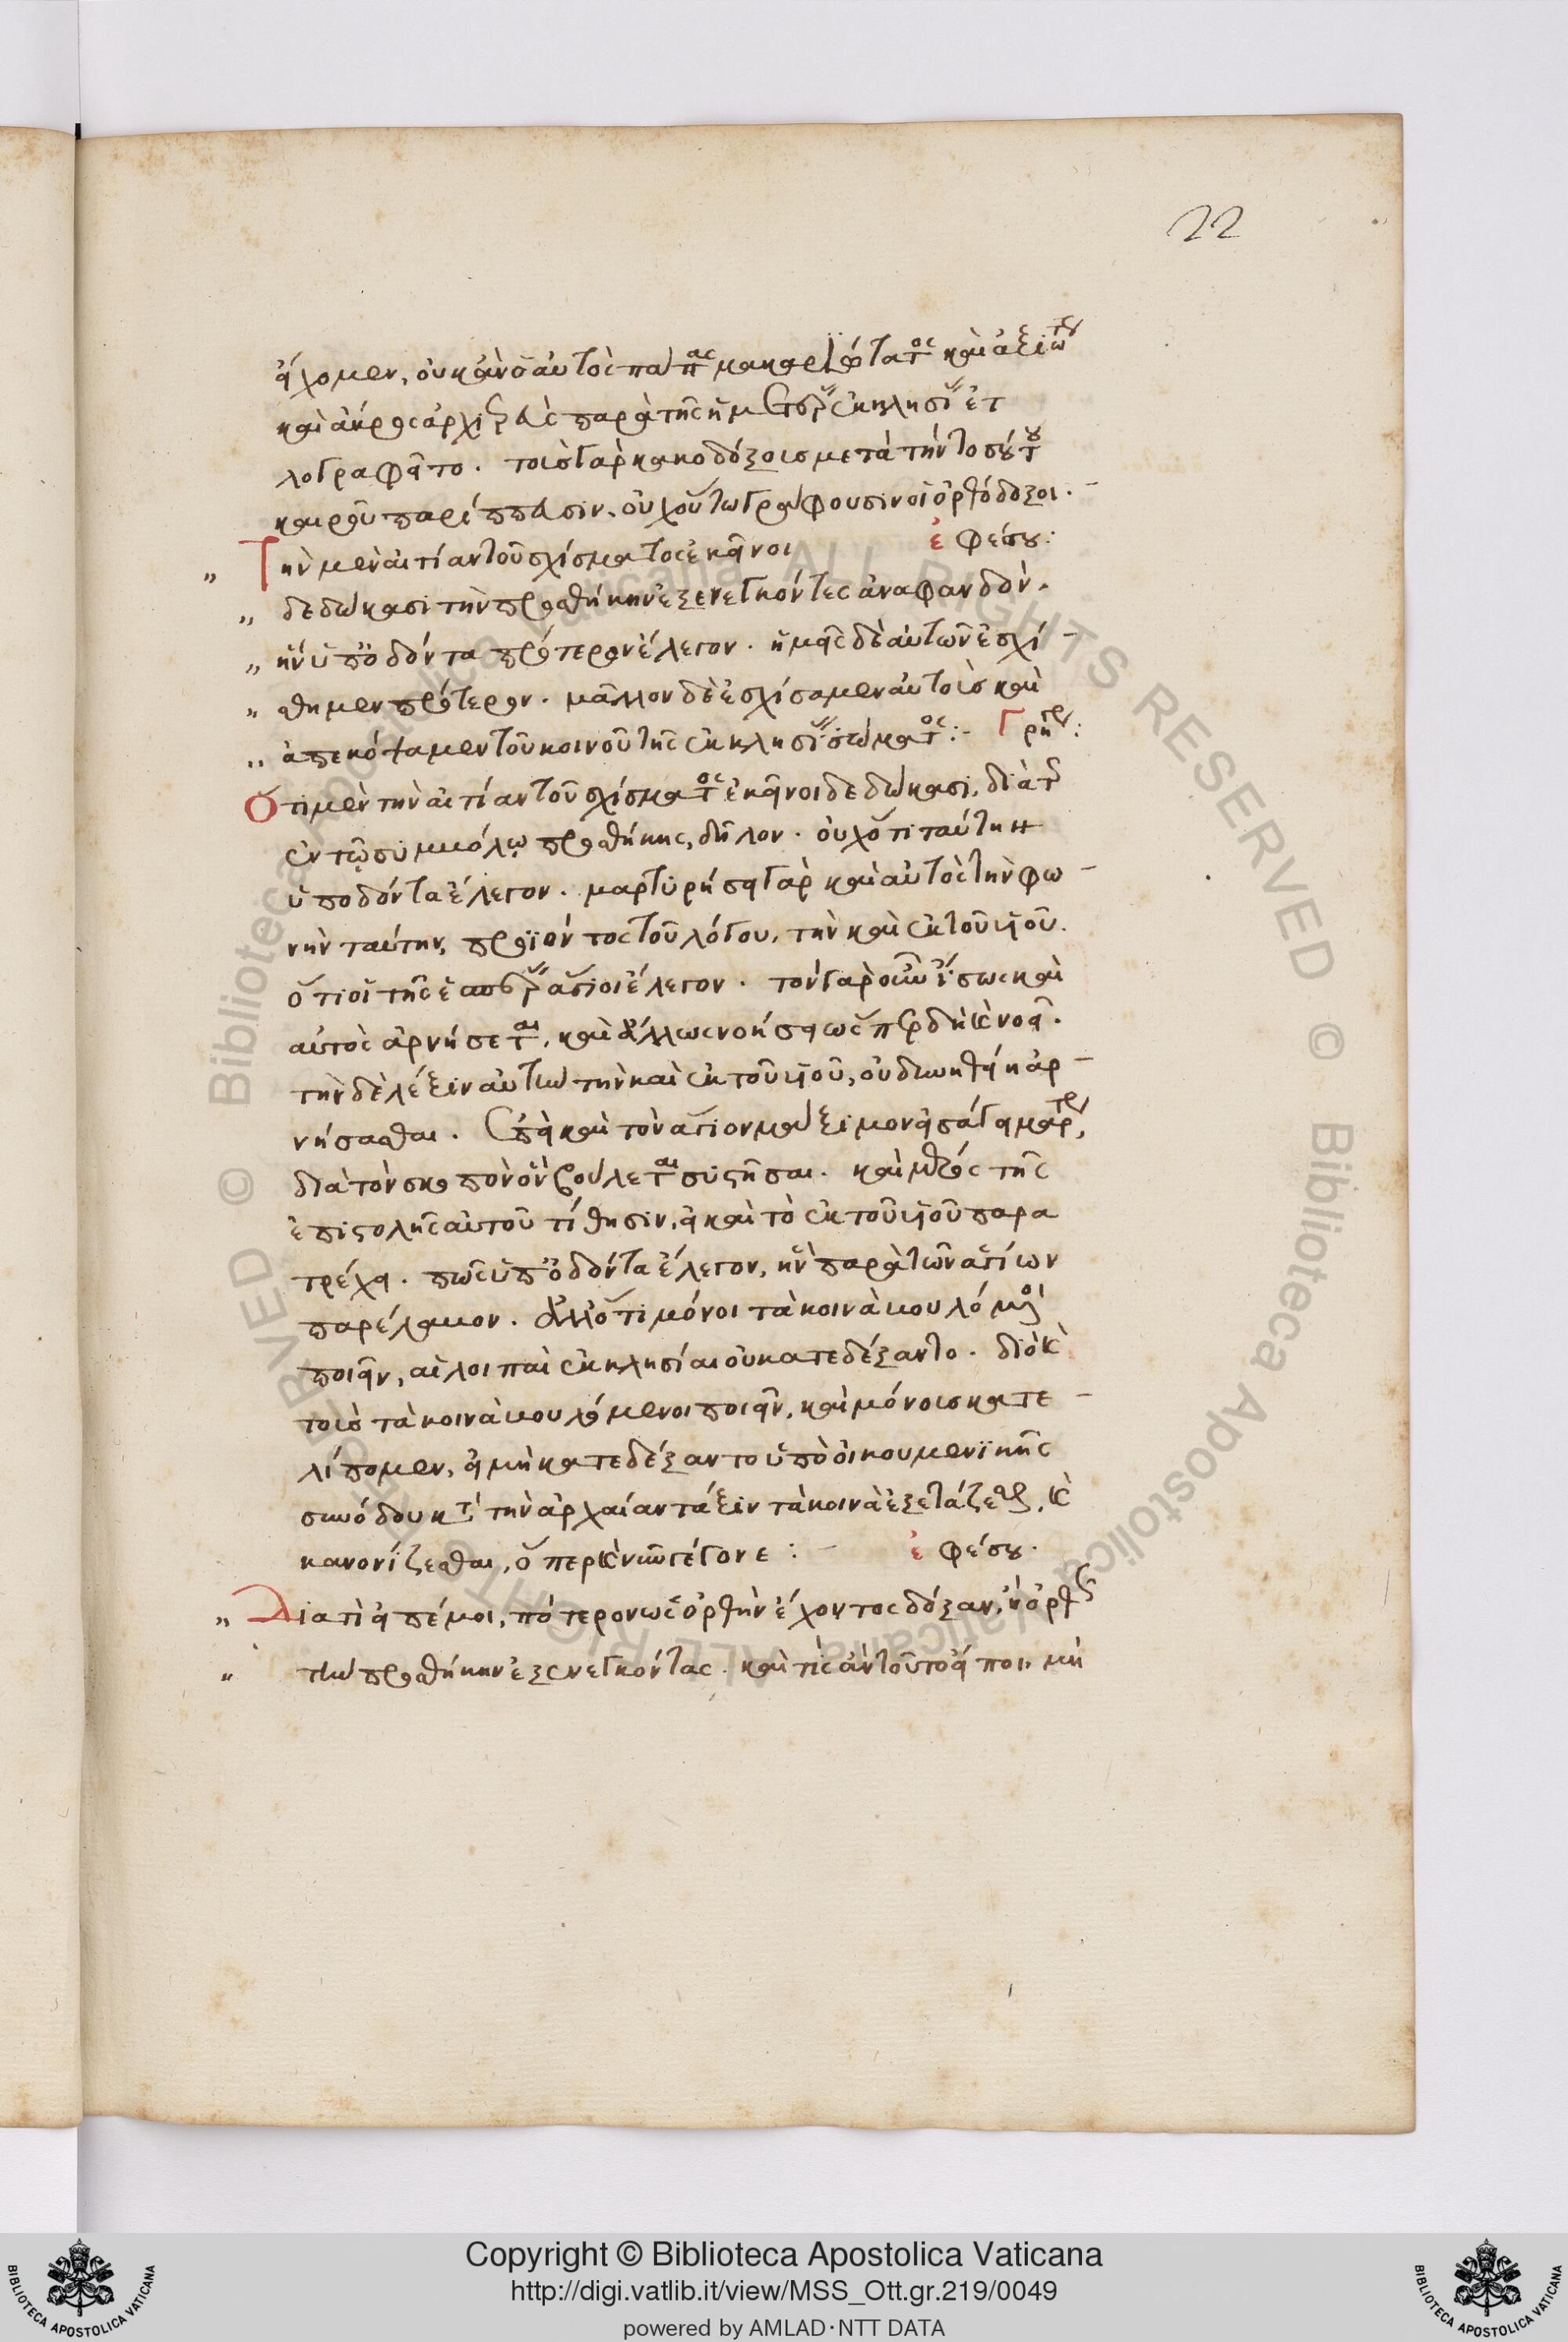 22
εἴχομεν, οὐκ ἂν ὁ αὐτὸς πάππας μακαριώτατος καὶ ἀξιώτου
καὶ ἄκρος ἀρχιερεὺς παρὰ τῆς ἡμετέρας ἐκκλησίας ἐτ
λογραφεῖτο. τοῖς γὰρ κακοδόξοις μετὰ τὴν τοσούτου
καιροῦ παρέππευσιν. οὐχ οὕτω γράφουσιν οἱ ὀρθόδοξοι.
Τὴν μὲν αἰτίαν τοῦ σχίσματος ἐκεῖνοι ἐφέσου:
δεδώκασι τὴν προσθήκην ἐξενεγκόντες ἀναφανδόν.
ἣν ὑπ' ὀδόντα πρότερον ἔλεγον. ἡμεῖς δὲ αὐτῶν ἐσχί
σθημεν πρότερον. μᾶλλον δὲ ἐσχίσαμεν αὐτοὺς καὶ
ἀπεκόψαμεν τοῦ κοινοῦ τῆς ἐκκλησίας σώματος:- Γρηγορίου:
Ὅτι μὲν τὴν αἰτίαν τοῦ σχίσματος ἐκεῖνοι δεδώκασι, διὰ τῆς
ἐν τῷ συμβόλῳ προσθήκης, δῆλον. οὐχ ὅτι ταύτην
ὑποδόντα ἔλεγον. μαρτυρήσει γὰρ καὶ αὐτὸς τὴν φω
νὴν ταύτην, προϊόντος τοῦ λόγου, τὴν καὶ ἐκ τοῦ υἱοῦ.
ὅτι οἱ τῆς ἑσπέρας ἅγιοι ἔλεγον. τὸν γὰρ νοῦν ἴσως καὶ
αὐτὸς ἀρνήσεται, καὶ ἄλλως νοήσει ὥσπερ δὴ καὶ νοεῖ.
τὴν δὲ λέξιν αὐτὴν τὴν καὶ ἐκ τοῦ υἱοῦ, οὐ δυνηθείη ἀρ
νήσασθαι. ἐπεὶ καὶ τὸν ἅγιον μάξιμον εἰσάγει μάρτυρα,
διὰ τὸν σκοπὸν ὃν βούλεται συστῆσαι. καὶ μέρος τῆς
ἐπιστολῆς αὐτοῦ τίθησιν, εἰ καὶ τὸ ἐκ τοῦ υἱοῦ παρα
τρέχει. πῶς ὑπ' ὀδόντα ἔλεγον, ἣν παρὰ τῶν ἁγίων
παρέλαβον. ἀλλ' ὅτι μόνοι τὰ κοινὰ βουλόμενοι
ποιεῖν, αἱ λοιπαὶ ἐκκλησίαι οὐ κατεδέξαντο. διὸ καὶ
τοῖς τὰ κοινὰ βουλόμενοι ποιεῖν, καὶ μόνοις κατε
λίπομεν, εἰ μὴ κατεδέξαντο ὑπὸ οἰκουμενϊκῆς
συνόδου κατὰ τὴν ἀρχαίαν τάξιν τὰ κοινὰ ἐξετάζεσθαι, καὶ
κανονίζεσθαι, ὅπερ καὶ νῦν γέγονε:- ἐφέσου.
Διατί εἰπέ μοι, πότερον ὡς ὀρθὴν ἔχοντος δόξαν, ἢ ὀρθῶς
τὴν προσθήκην ἐξενεγκόντας. καὶ τίς ἂν τοῦτο εἴποι, μὴ
Copyright © Biblioteca Apostolica Vaticana
http://digi.vatlib.it/view/MSS_Ott.gr.219/0049
powered by AMLAD·NTT DATA